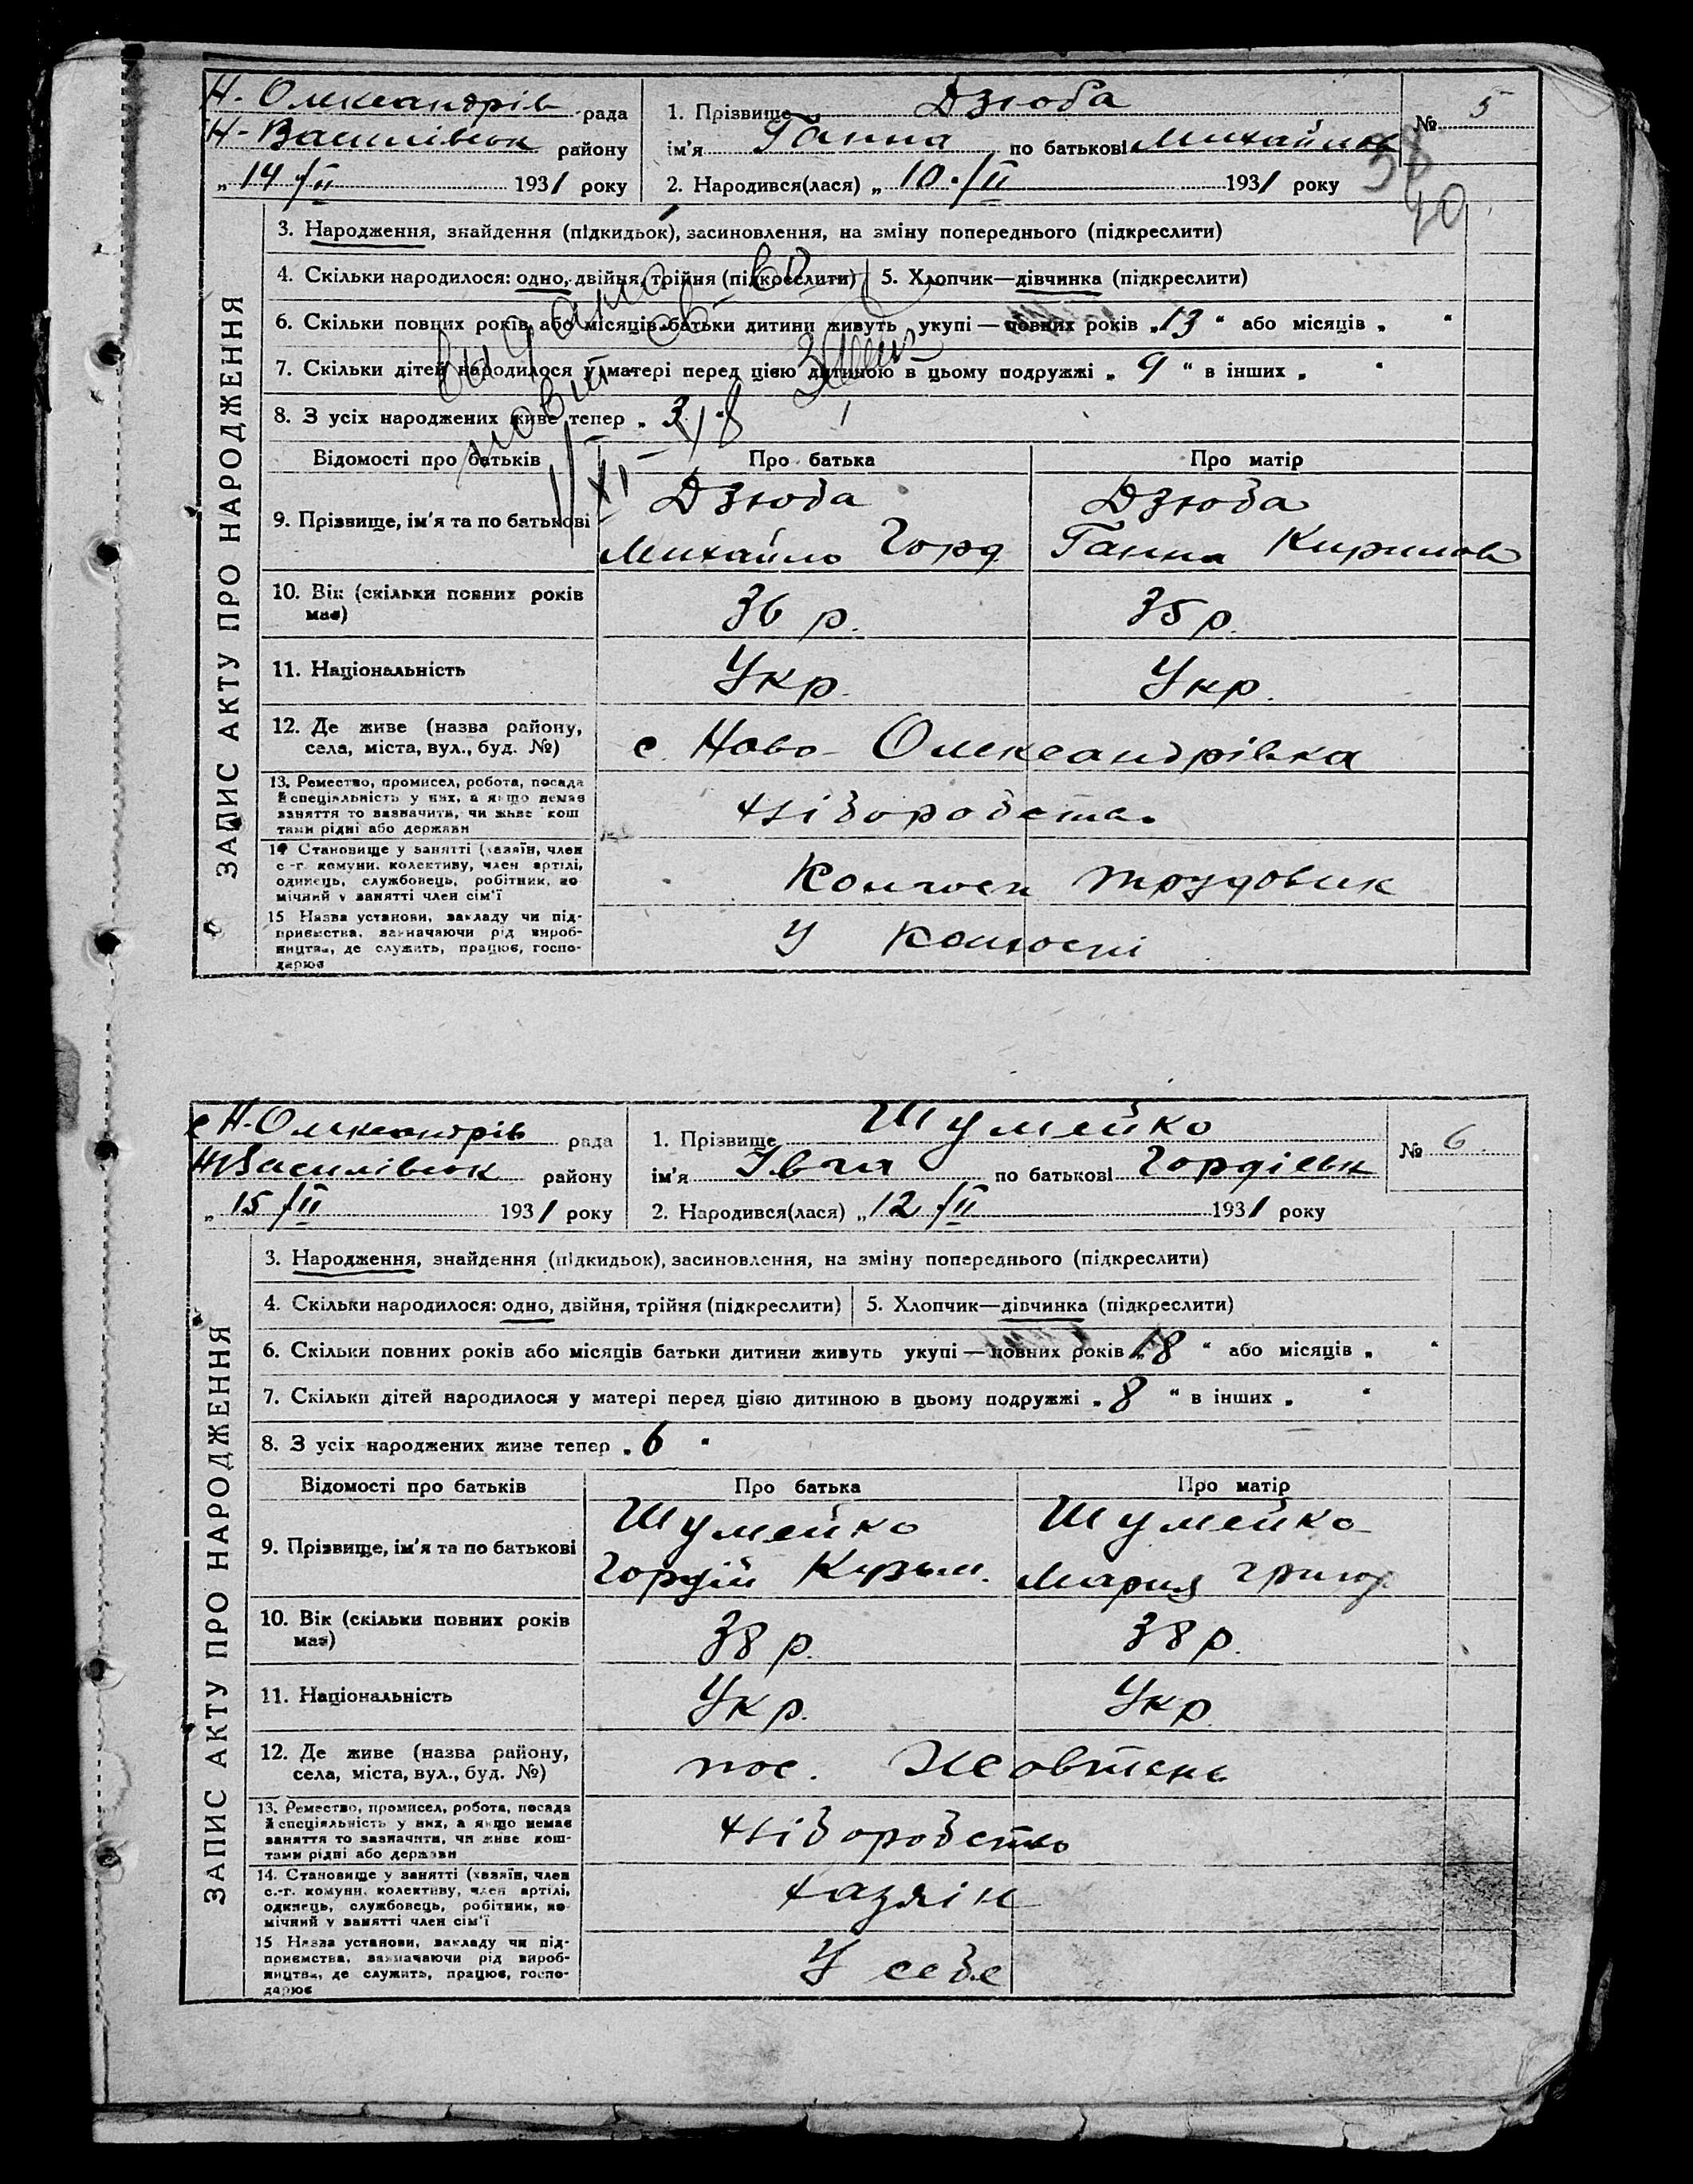 Н. Олександрів рада
Н-Василівськ району
„14/II 1931 року
1. Прізвище Дзюба
ім'я Ганна по батькові Михайлів
2. Народився(лася) „10./II 1931 року
№ 5
38
40
ЗАПИС АКТУ ПРО НАРОДЖЕННЯ
3. Народження, знайдення (підкидьок), засиновлення, на зміну попереднього (підкреслити)
4. Скільки народилося: одно, двійня, трійня (підкреслити) 5. Хлопчик—дівчинка (підкреслити)
6. Скільки повних років або місяців батьки дитини живуть укупі — повних років „13" або місяців „ "
7. Скільки дітей народилося у матері перед цією дитиною в цьому подружжі „ 9 " в інших „ "
8. З усіх народжених живе тепер „ 3 "
Відомості про батьків Про батька Про матір
9. Прізвище, ім'я та по батькові Дзюба Дзюба
Михайло Горд Ганна Кирилов
10. Вік (скільки повних років має) 36 р. 35 р.
11. Національність Укр. Укр.
12. Де живе (назва району,
села, міста, вул., буд. №) с. Ново-Олександрівка
13. Ремество, промисел, робота, посада
й спеціяльність у них, а якщо немає
заняття то зазначити, чи живе кош
тами рідні або держави
хліборобство
14 Становище у занятті (хазяїн, член
с.-г. комуни, колективу, член артілі,
одинець, службовець, робітник, по
мічний у занятті член сім'ї
Колгосп трудовик
15 Назва установи, закладу чи під-
приємства, зазначаючи рід вироб-
ництва, де служить, працює, госпо-
дарює
У колгоспі
с Н-Олександрів рада
Н-Василівськ району
„ 15/II 1931 року
1. Прізвище Шумейко
ім'я Івга по батькові Гордієвн
2. Народився(лася) „12/II 1931 року
№ 6
ЗАПИС АКТУ ПРО НАРОДЖЕННЯ
3. Народження, знайдення (підкидьок), засиновлення, на зміну попереднього (підкреслити)
4. Скільки народилося: одно, двійня, трійня (підкреслити) 5. Хлопчик—дівчинка (підкреслити)
6. Скільки повних років або місяців батьки дитини живуть укупі — повних років „18 " або місяців „ "
7. Скільки дітей народилося у матері перед цією дитиною в цьому подружжі „ 8 " в інших „ "
8. З усіх народжених живе тепер „ 6 "
Відомості про батьків Про батька Про матір
9. Прізвище, ім'я та по батькові Шумейко Шумейко
Гордій Кузьм. Мария Григор
10. Вік (скільки повних років має) 38 р. 38 р.
11. Національність Укр. Укр
12. Де живе (назва району,
села, міста, вул., буд. №) пос. Жовтень
13. Ремество, промисел, робота, посада
й спеціяльність у них, а якщо немає
заняття то зазначити, чи живе кош-
тами рідні або держави
хліборобство
14. Становище у занятті (хазяїн, член
с.-г. комуни, колективу, член артілі,
одинець, службовець, робітник, по
мічний у занятті член сім'ї
хазяїн
15 Назва установи, закладу чи під-
приємства, зазначаючи рід вироб-
ництва, де служить, працює, госпо-
дарює
У себе